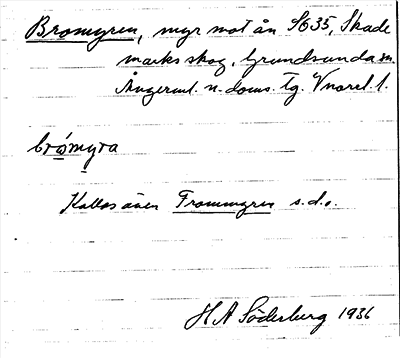 Bromyren, myr mot ån SO35, Skade
marks skog, Grundsunda sn.
Ångerml. n. doms. tg. V norrl. l.
brómyra
Kallas även Frommyren s.d.o.
H A Söderberg 1936